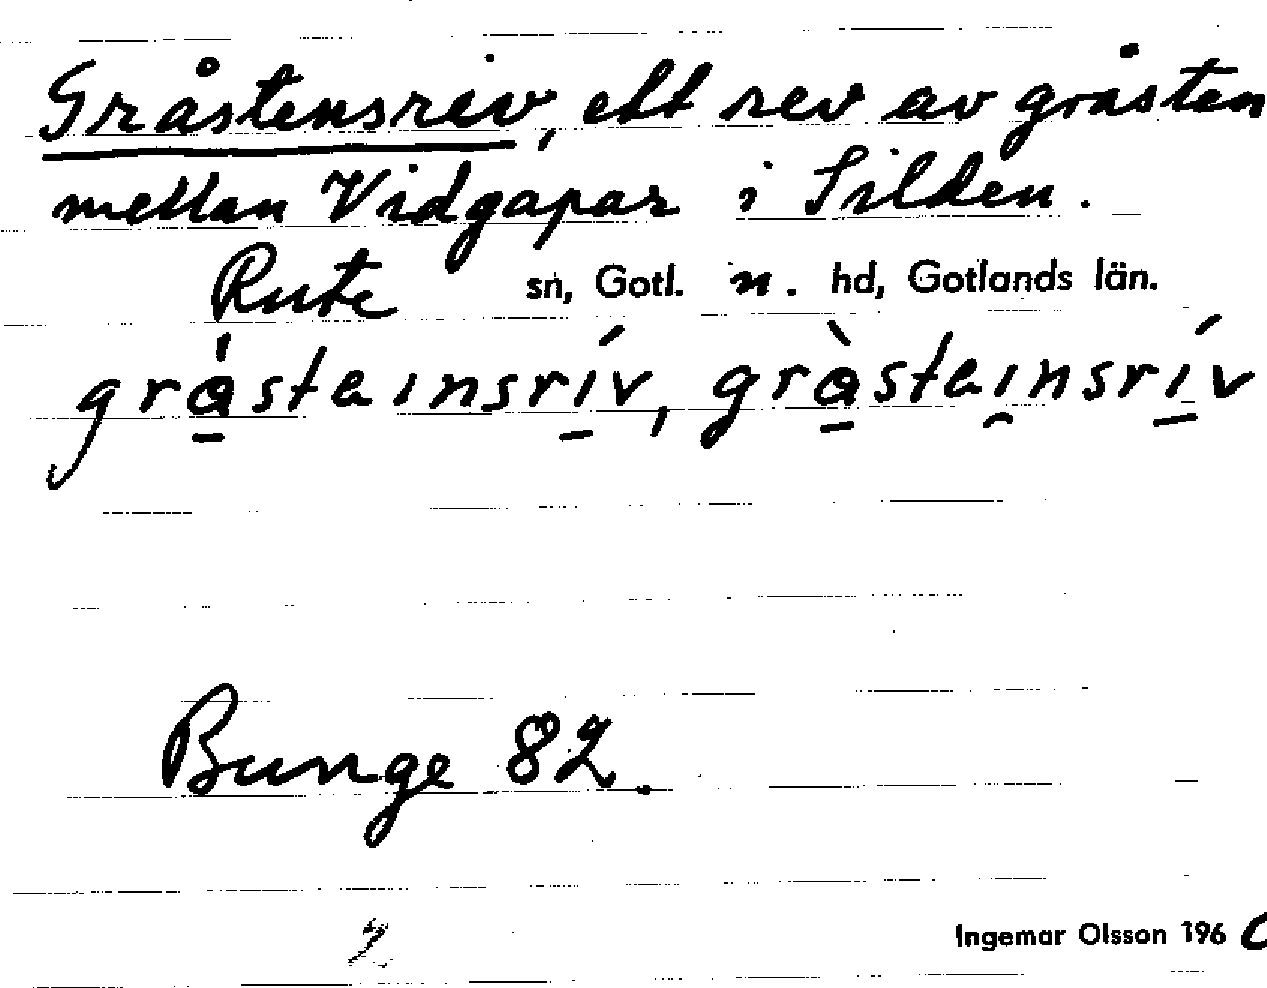 Gråstensreiv, ett rev av gråsten
mellan Vidgapar i Silden.
Rute sn, Gotl. n. hd, Gotlands län.
gråsteinsrív, gràsteinsrív
Bunge 82.
2
Ingemar Olsson 196